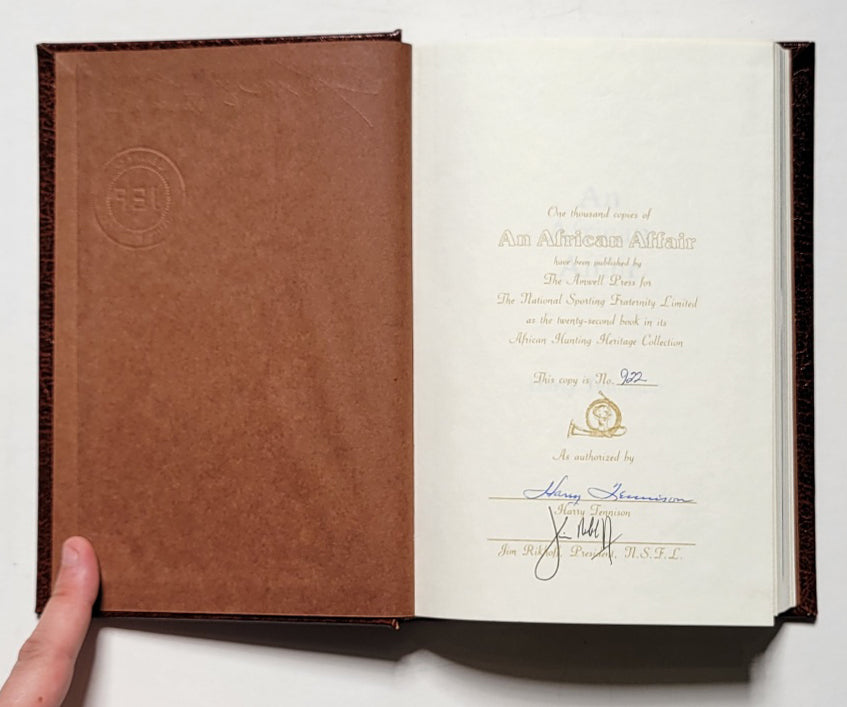 One thousand copies of
An African Affair
have been published by
The Amwell Press for
The National Sporting Fraternity Limited
as the twenty-second book in its
African Hunting Heritage Collection
This copy is No. 922
As authorized by
Harry Tennison
Harry Tennison
Jim Rikhoff
Jim Rikhoff, President, N.S.F.L.